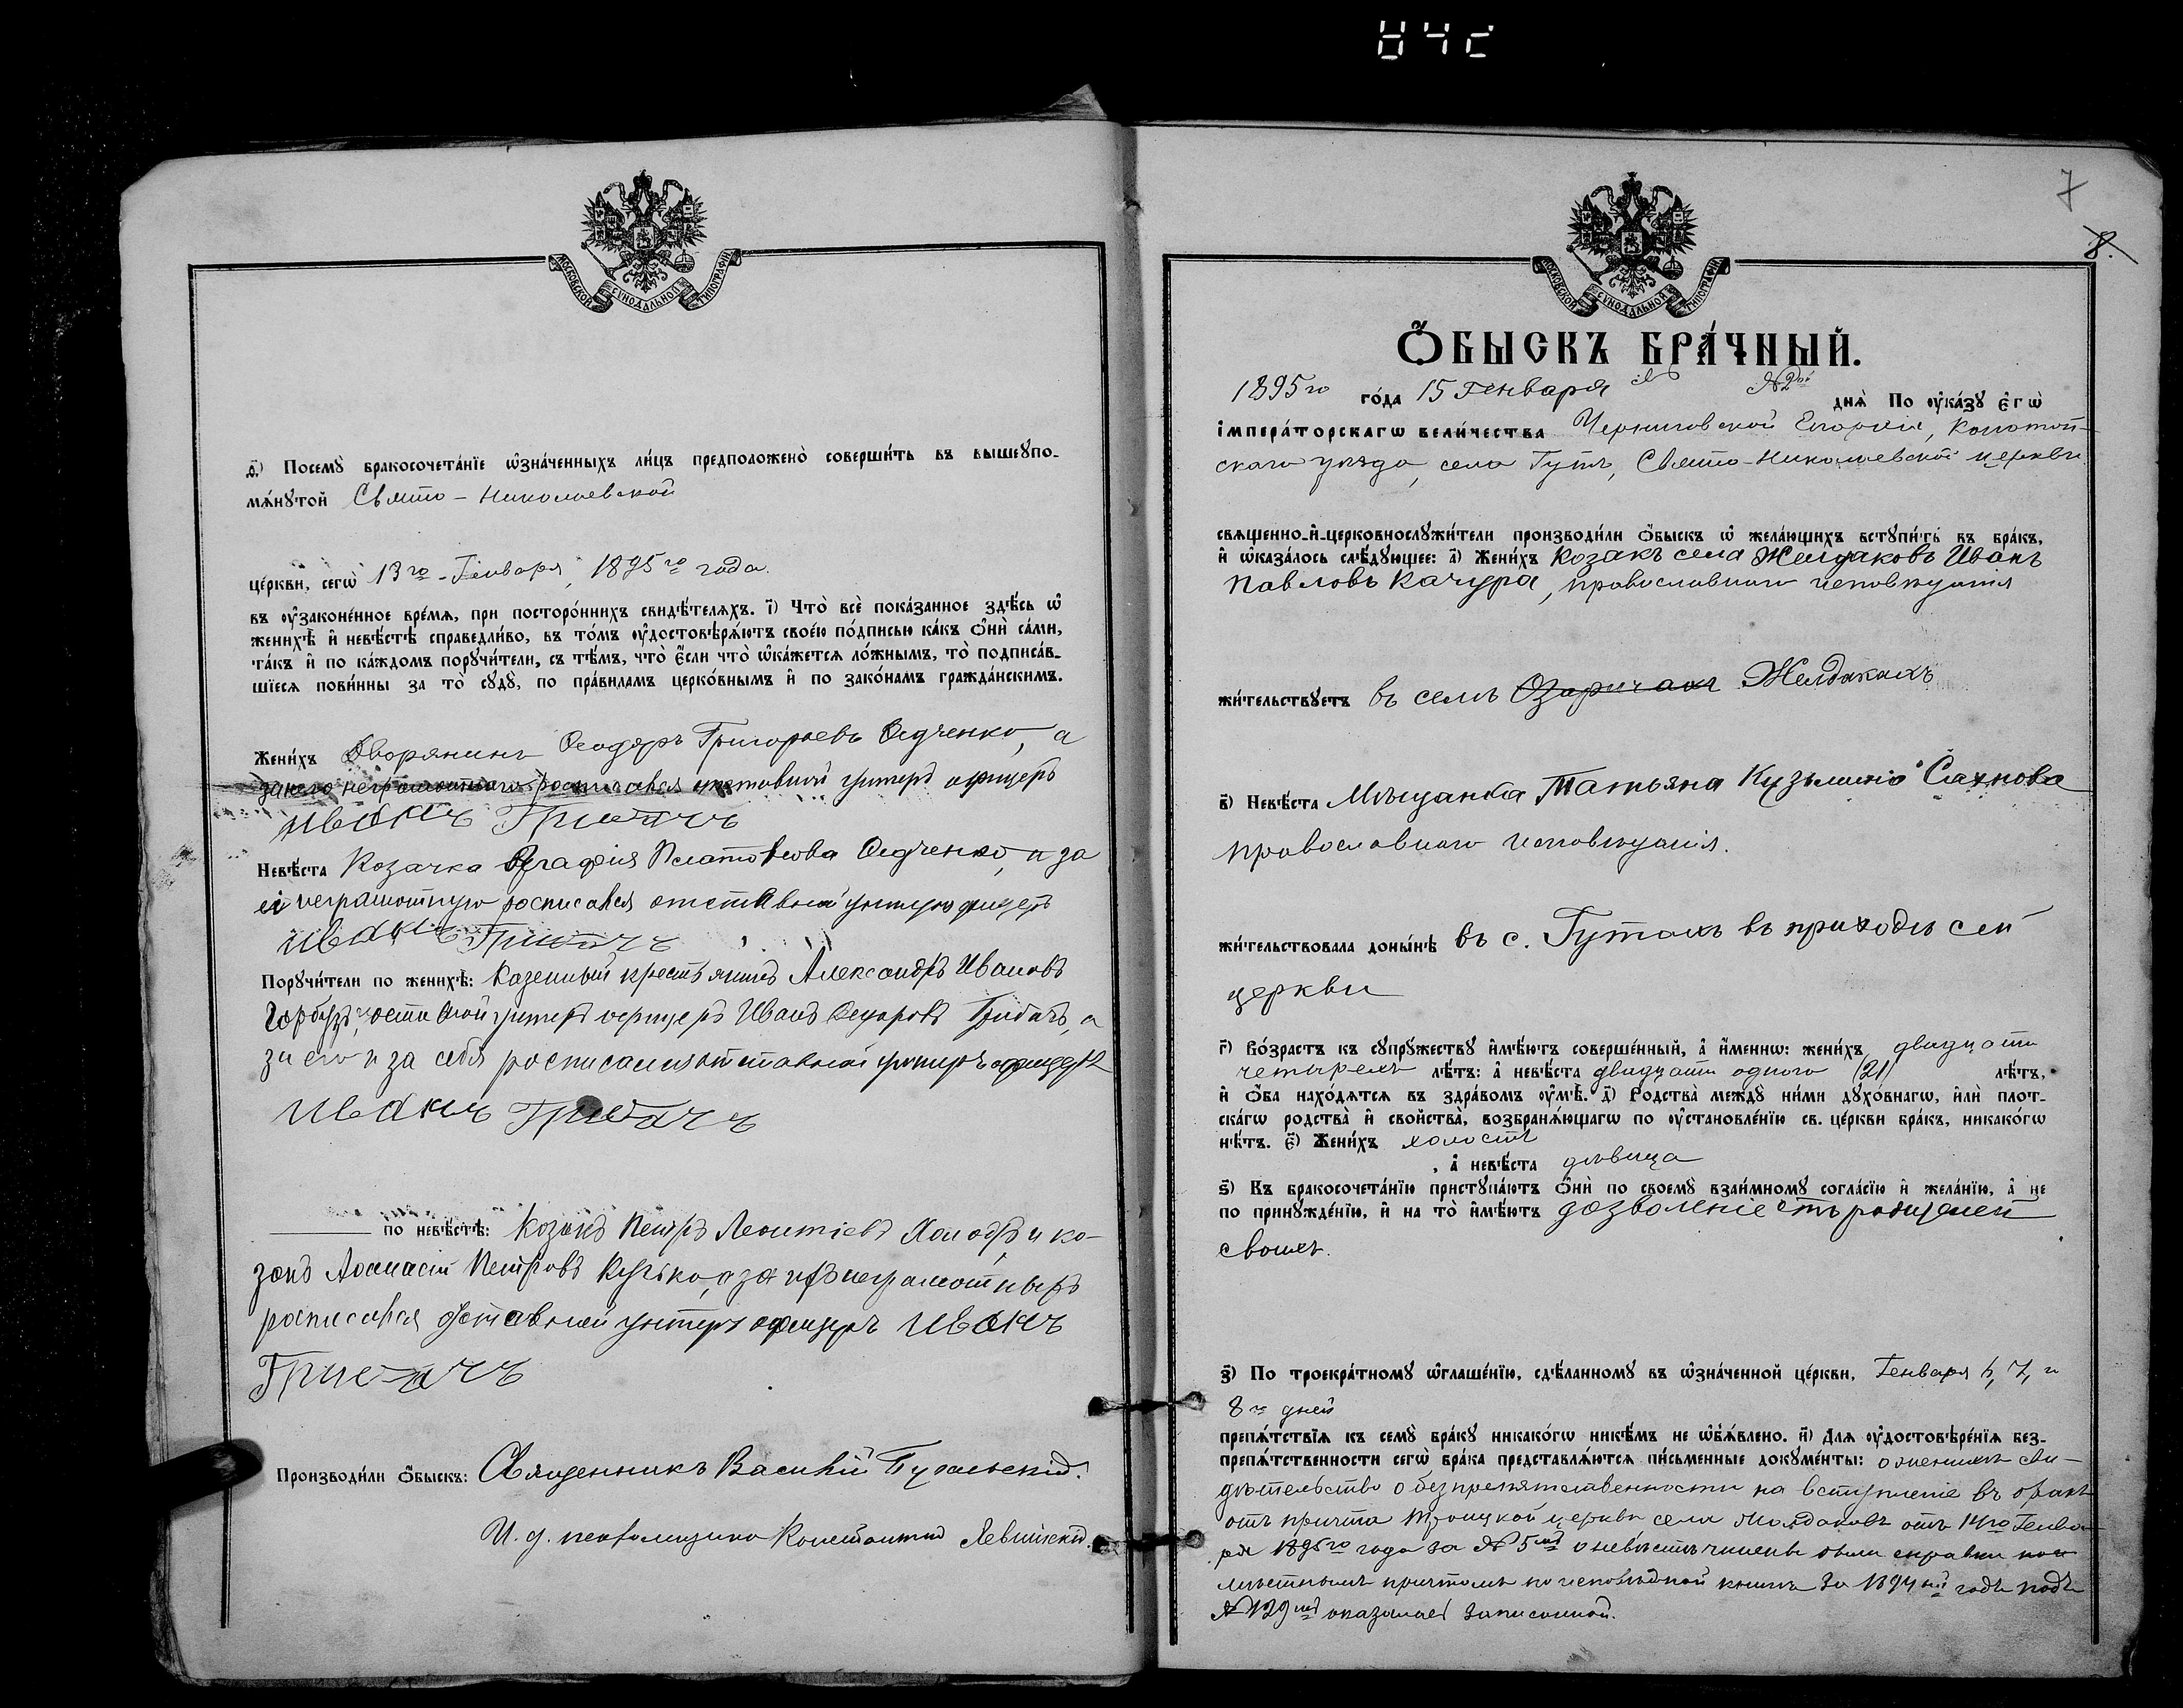 МОСКОВСКОЙ СУНОДАЛЬНОЙ ТИПОГРАФІИ
д҃) Посемꙋ̀ бракосочета́нїе ѡ҆зна́ченныхъ ли́цъ предположено̀ соверши́ть въ вышеꙋпо-
мѧ́нꙋтой Свято-Николаевской
це́ркви, сегѡ̀ 13го Генваря, 1895го года.
въ ᲂу҆законе́нное вре́мѧ, при посторо́ннихъ свидѣ́телѧхъ. і҃) Что̀ всѐ пока́занное здѣ́сь ѡ҆
женихѣ̀ и҆ невѣ́стѣ справедли́во, въ то́мъ ᲂу҆достовѣрѧ́ютъ свое́ю по́дписью ка́къ ѻ҆нѝ са́ми,
та́къ и҆ по ка́ждомъ порꙋчи́тели, съ тѣ́мъ, что̀ є҆́сли что̀ ѡ҆ка́жетсѧ ло́жнымъ, то̀ подписа́в-
шїесѧ пови́нны за то̀ сꙋдꙋ̀, по пра́виламъ церко́внымъ и҆ по зако́намъ гражда́нскимъ.
Жени́хъ Дворянинъ Ѳеодоръ Григорьевъ Ѳедченко, а
за него неграмотнаго росписался отставной унтеръ офицеръ
Иванъ Грибачъ
Невѣ́ста Козачка Агафія Платонова Ѳедченко, а за
её неграмотную росписался отставной унтеръ офицеръ
Иванъ Грибачъ
Порꙋчи́тели по женихѣ̀: Казенный крестьянинъ Александръ Ивановъ
Горбузъ, отставной унтеръ офицеръ Иванъ Ѳедоровъ Грибачъ, а
за его и за себя росписался отставной унтеръ офицеръ
Иванъ Грибачъ
по невѣ́стѣ: Козакъ Петръ Леонтіевъ и ко-
закъ Аѳанасій Петровъ а за ихъ неграмотныхъ
росписался отставной унтеръ офицеръ Иванъ
Грибачъ
Производи́ли ѻ҆́быскъ: Священникъ Василій
И. д. псаломщика Константинъ Левицкій.
7
8.
МОСКОВСКОЙ СУНОДАЛЬНОЙ ТИПОГРАФІИ
Ѻ҆́БЫСКЪ БРА́ЧНЫЙ.
1895го го́да 15 Генваря №2й днѧ̀ По ᲂу҆ка́зꙋ є҆гѡ̀
і҆мпера́торскагѡ вели́чества Черниговской Епархіи, Конотоп-
скаго уѣзда, села Гутъ, Свято-Николаевской церкви
свѧщенно-и҆-церковнослꙋжи́тели производи́ли ѻ҆́быскъ ѡ҆ жела́ющихъ встꙋпи́ть въ бра́къ,
и҆ ѡ҆каза́лось слѣ́дꙋющее: а҃) Жени́хъ Козакъ села Желдаковъ Иванъ
Павловъ Качура, православнаго исповѣданія
жи́тельствꙋетъ въ селѣ Озаричахъ Желдакахъ
в҃) Невѣ́ста Мѣщанка Татьяна Кузьмина Сахнова
православнаго исповѣданія.
жи́тельствовала доны́нѣ въ с. Гутахъ въ приходѣ сей
церкви
г҃) Во́зрастъ къ сꙋпрꙋ́жествꙋ и҆мѣ́ютъ соверше́нный, а҆ и҆́меннѡ: жени́хъ двадцати
четырехъ лѣ́тъ: а҆ невѣ́ста двадцати одного (21) лѣ́тъ,
и҆ ѻ҆́ба нахо́дѧтсѧ въ здра́вомъ ᲂу҆мѣ̀. д҃) Родства̀ междꙋ̀ ни́ми дꙋхо́внагѡ, и҆лѝ плот-
ска́гѡ родства̀ и҆ свойства̀, возбранѧ́ющагѡ по ᲂу҆становле́нїю св. це́ркви бра́къ, никако́гѡ
нѣ́тъ. є҃) Жени́хъ холостъ
, а҆ невѣ́ста дѣвица
ѕ҃) Къ бракосочета́нїю пристꙋпа́ютъ ѻ҆нѝ по своемꙋ̀ взаи́мномꙋ согла́сїю и҆ жела́нїю, а҆ не
по принꙋжде́нїю, и҆ на то̀ и҆мѣ́ютъ дозволеніе отъ родителей
своихъ.
з҃) По троекра́тномꙋ ѡ҆глаше́нїю, сдѣ́ланномꙋ въ ѡ҆зна́ченной це́ркви, Генваря 6, 7, и
8го дней
препѧ́тствїѧ къ семꙋ̀ бра́кꙋ никако́гѡ никѣ́мъ не ѡ҆б̾ѧ́влено. и҃) Длѧ ᲂу҆достовѣре́нїѧ без-
препѧ́тственности сегѡ̀ бра́ка представлѧ́ютсѧ пи́сьменные докꙋме́нты: о женихѣ сви-
дѣтельство о безпрепятственности на вступленіе въ бракъ
отъ причта Троицкой церкви села Желдаковъ отъ 14го Генва-
ря 1895го года за №5мъ о невѣстѣ чинены были справки
мѣстнымъ причтомъ по исповѣдной книгѣ за 1894й годъ подъ
№129мъ оказалась записанной.